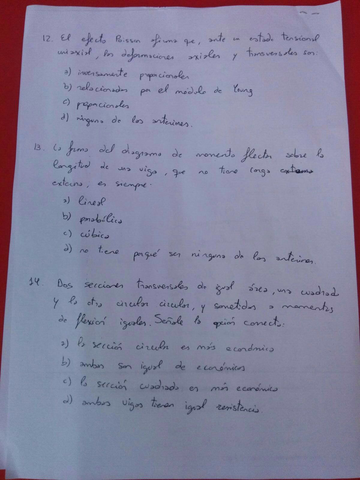 12. El efecto Poisson afirma que, ante un estado tensional
uniaxial, las deformaciones axiales y transversales son:
a) inversamente proporcionales
b) relacionadas por el módulo de Young
c) proporcionales
d) ninguna de las anteriores.
13. La forma del diagrama de momento flector sobre la
longitud de una viga, que no tiene carga
externa, es siempre:
a) lineal
b) parabólica
c) cúbica
d) no tiene porqué ser ninguna de las anteriores.
14 Dos secciones transversales de igual área, una cuadrada
y la otra circular circular, y sometidas a momentos
de flexión iguales. Señale la opción correcta:
a) la sección circular es más económica
b) ambas son igual de económicas
c) la sección cuadrada es más económica
d) ambas vigas tienen igual resistencia